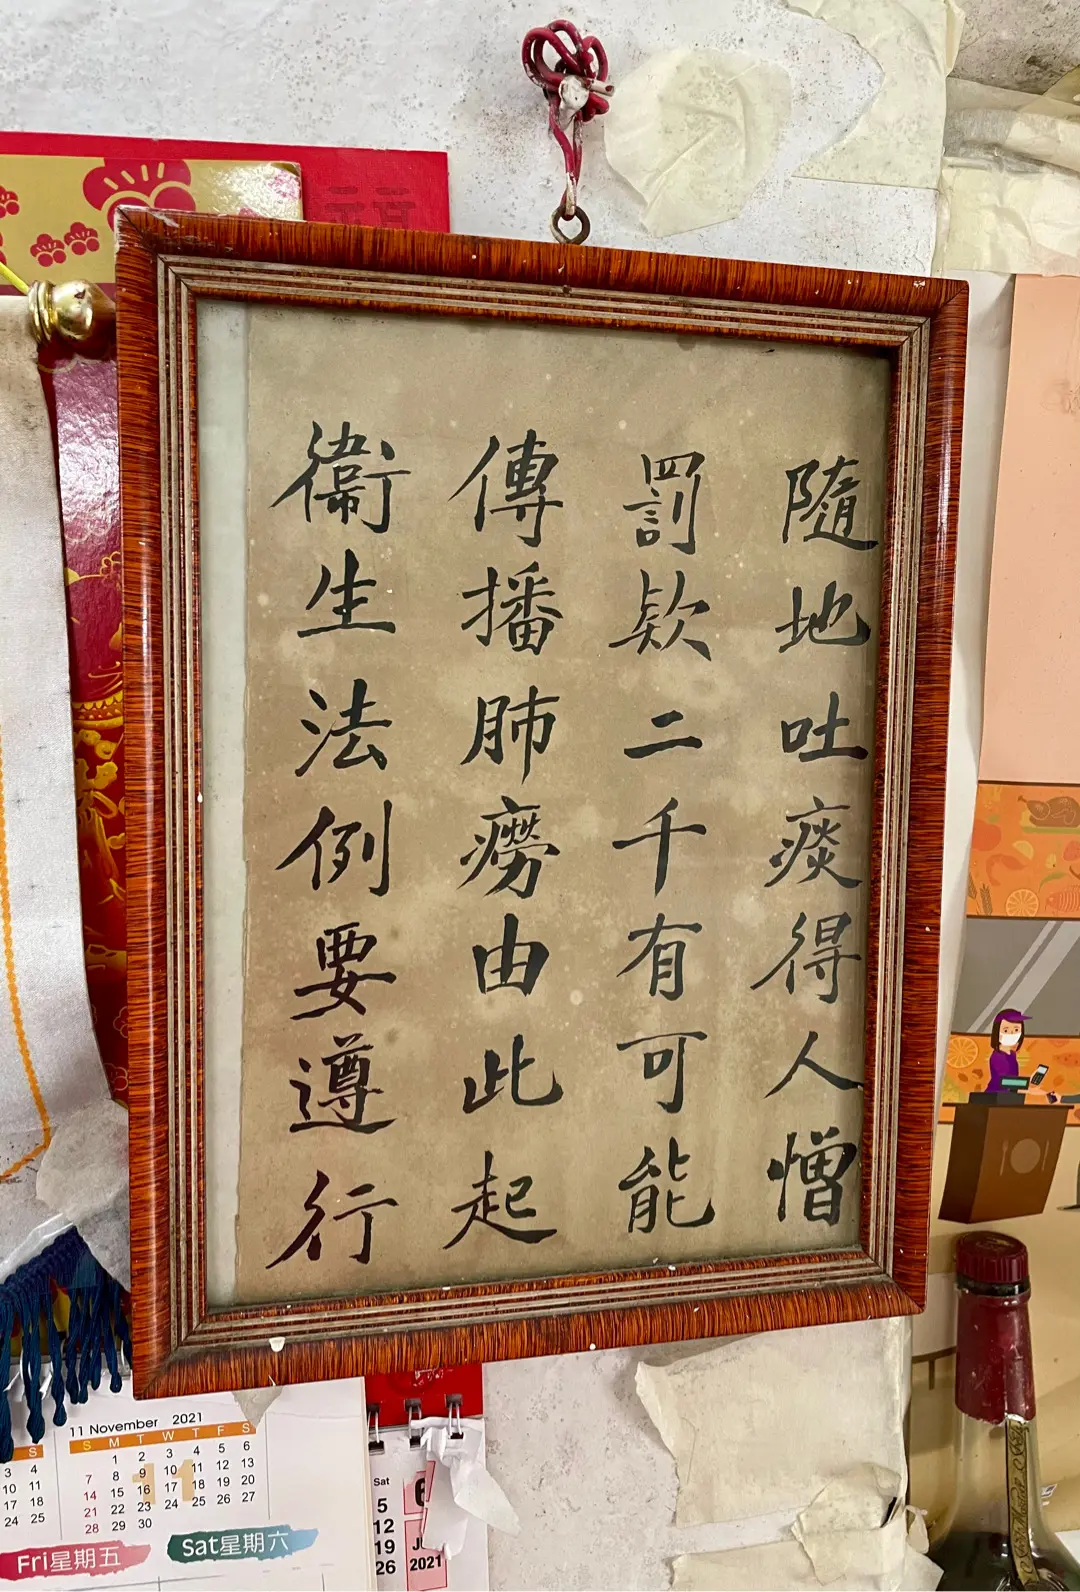 隨地吐痰得人憎
罰欵二千有可能
傳播肺癆由此起
衞生法例要遵行
11 November 2021
S M T W T F S
1 2 3 4 5 6
7 8 9 10 11 12 13
14 15 16 17 18 19 20
21 22 23 24 25 26 27
28 29 30
11
S
3 4
10 11
17 18
24 25
Fri星期五
Sat星期六
Sat
5
12
19
26
6
2021